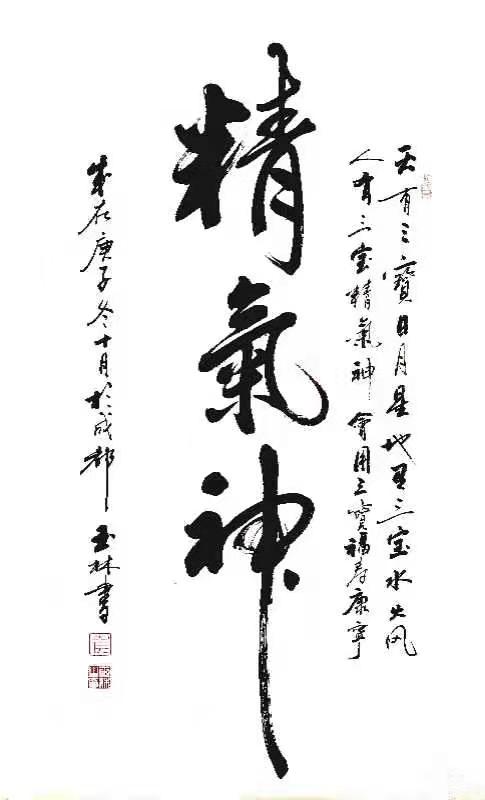 天有三寶日月星地有三宝水火风
人有三宝精氣神會用三寶福寿康寧
精氣神
歲在庚子冬十月於成都
玉林書